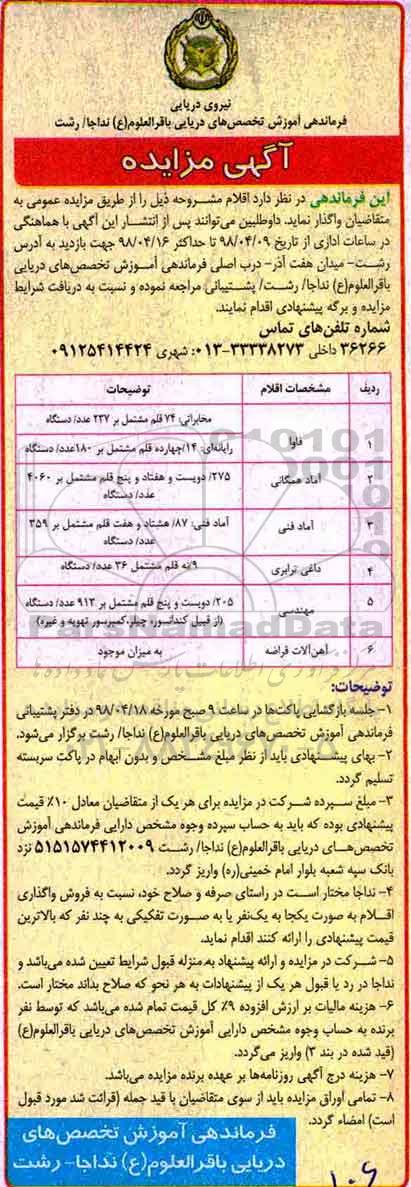 نیروی دریایی
فرماندهی آموزش تخصص‌های دریایی باقرالعلوم(ع) نداجا/ رشت
آگهی مزایده
این فرماندهی در نظر دارد اقلام مشروحه ذیل را از طریق مزایده عمومی به
متقاضیان واگذار نماید. داوطلبین می‌توانند پس از انتشار این آگهی با هماهنگی
در ساعات اداری از تاریخ ۹۸/۰۴/۰۹ تا حداکثر ۹۸/۰۴/۱۶ جهت بازدید به آدرس
رشت– میدان هفت آذر– درب اصلی فرماندهی آموزش تخصص‌های دریایی
باقرالعلوم(ع) نداجا/ رشت/ پشتیبانی مراجعه نموده و نسبت به دریافت شرایط
مزایده و برگه پیشنهادی اقدام نمایند.
شماره تلفن‌های تماس
۳۶۲۶۶ داخلی ۳۳۳۳۸۲۷۳–۰۱۳: شهری ۰۹۱۲۵۴۱۴۴۲۴
ردیف مشخصات اقلام توضیحات
۱ فاوا مخابراتی: ۷۴ قلم مشتمل بر ۲۳۷ عدد/ دستگاه
رایانه‌ای: ۱۴/چهارده قلم مشتمل بر ۱۸۰عدد/ دستگاه
۲ آماد همگانی ۲۷۵/ دویست و هفتاد و پنج قلم مشتمل بر ۴۰۶۰
عدد/ دستگاه
۳ آماد فنی آماد فنی: ۸۷/ هشتاد و هفت قلم مشتمل بر ۳۵۹
عدد/ دستگاه
۴ داغی ترابری ۹/نه قلم مشتمل ۳۶ عدد/ دستگاه
۵ مهندسی ۲۰۵/ دویست و پنج قلم مشتمل بر ۹۱۳ عدد/ دستگاه
(از قبیل کندانسور، چیلر، کمپرسور تهویه و غیره)
۶ آهن‌آلات قراضه به میزان موجود
توضیحات:
۱– جلسه بازگشایی پاکت‌ها در ساعت ۹ صبح مورخه ۹۸/۰۴/۱۸ در دفتر پشتیبانی
فرماندهی آموزش تخصص‌های دریایی باقرالعلوم(ع) نداجا/ رشت برگزار می‌شود.
۲– بهای پیشنهادی باید از نظر مبلغ مشخص و بدون ابهام در پاکت سربسته
تسلیم گردد.
۳– مبلغ سپرده شرکت در مزایده برای هر یک از متقاضیان معادل ۱۰٪ قیمت
پیشنهادی بوده که باید به حساب سپرده وجوه مشخص دارایی فرماندهی آموزش
تخصص‌های دریایی باقرالعلوم(ع) نداجا/ رشت ۵۱۵۱۵۷۴۴۱۲۰۰۹ نزد
بانک سپه شعبه بلوار امام خمینی(ره) واریز گردد.
۴– نداجا مختار است در راستای صرفه و صلاح خود، نسبت به فروش واگذاری
اقلام به صورت یکجا به یک‌نفر یا به صورت تفکیکی به چند نفر که بالاترین
قیمت پیشنهادی را ارائه کنند اقدام نماید.
۵– شرکت در مزایده و ارائه پیشنهاد به منزله قبول شرایط تعیین شده می‌باشد و
نداجا در رد یا قبول هر یک از پیشنهادات به هر نحو که صلاح بداند مختار است.
۶– هزینه مالیات بر ارزش افزوده ۹٪ کل قیمت تمام شده می‌باشد که توسط نفر
برنده به حساب وجوه مشخص دارایی آموزش تخصص‌های دریایی باقرالعلوم(ع)
(قید شده در بند ۳) واریز می‌گردد.
۷– هزینه درج آگهی روزنامه‌ها بر عهده برنده مزایده می‌باشد.
۸– تمامی اوراق مزایده باید از سوی متقاضیان با قید جمله (قرائت شد مورد قبول
است) امضاء گردد.
فرماندهی آموزش تخصص‌های
دریایی باقرالعلوم(ع) نداجا– رشت